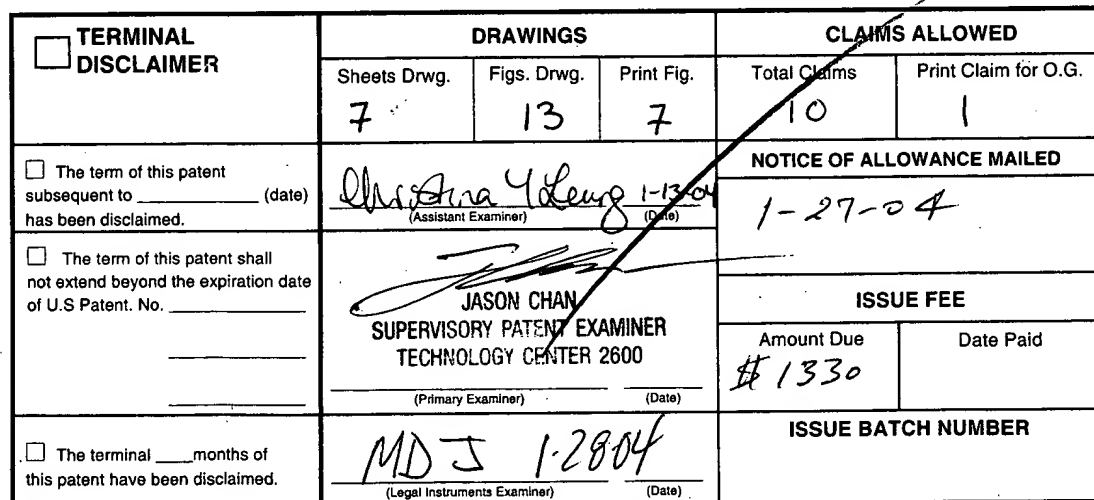 TERMINAL
DISCLAIMER
DRAWINGS
CLAIMS ALLOWED
Sheets Drwg.
Figs. Drwg.
Print Fig.
Total Claims
Print Claim for O.G.
7
13
7
10
1
The term of this patent
subsequent to ____________ (date)
has been disclaimed.
Christina Y Leung 1-13-04
(Assistant Examiner) (Date)
NOTICE OF ALLOWANCE MAILED
1-27-04
The term of this patent shall
not extend beyond the expiration date
of U.S Patent. No. ____________
JASON CHAN
SUPERVISORY PATENT EXAMINER
TECHNOLOGY CENTER 2600
(Primary Examiner) (Date)
ISSUE FEE
Amount Due
Date Paid
$1330
The terminal ____months of
this patent have been disclaimed.
MDJ 1-28-04
(Legal Instruments Examiner) (Date)
ISSUE BATCH NUMBER